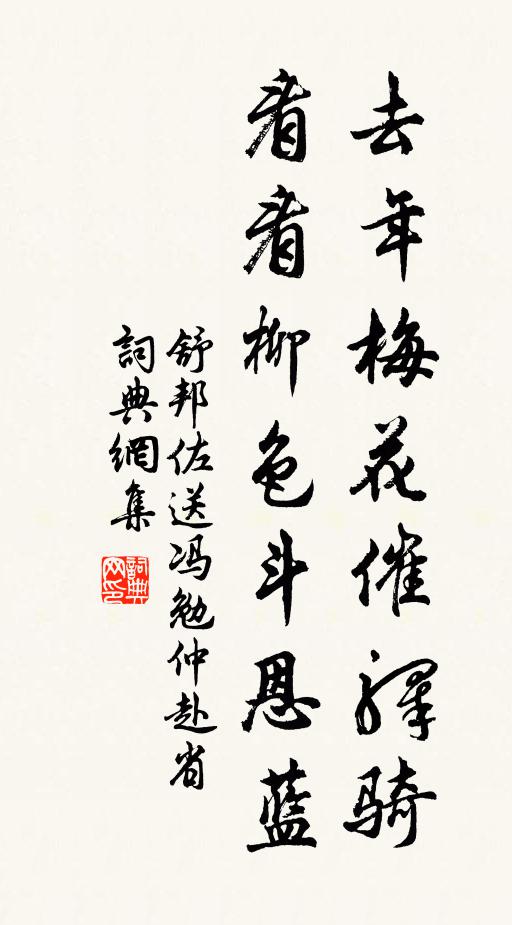 去年梅花催驿骑
看看柳色斗恩蓝
舒邦佐送冯勉仲赴省
詞典網集
詞典网印